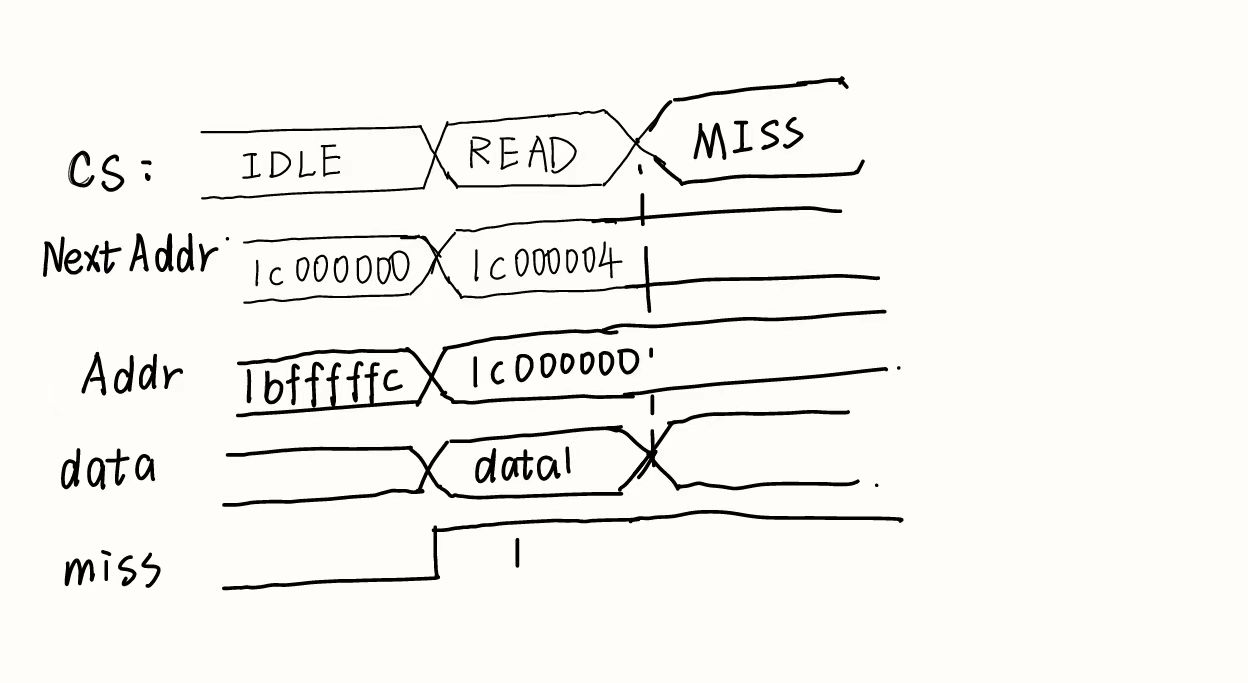 CS: IDLE READ MISS
Next Addr 1c000000 1c000004
Addr 1bfffffc 1c000000
data data1
miss 1